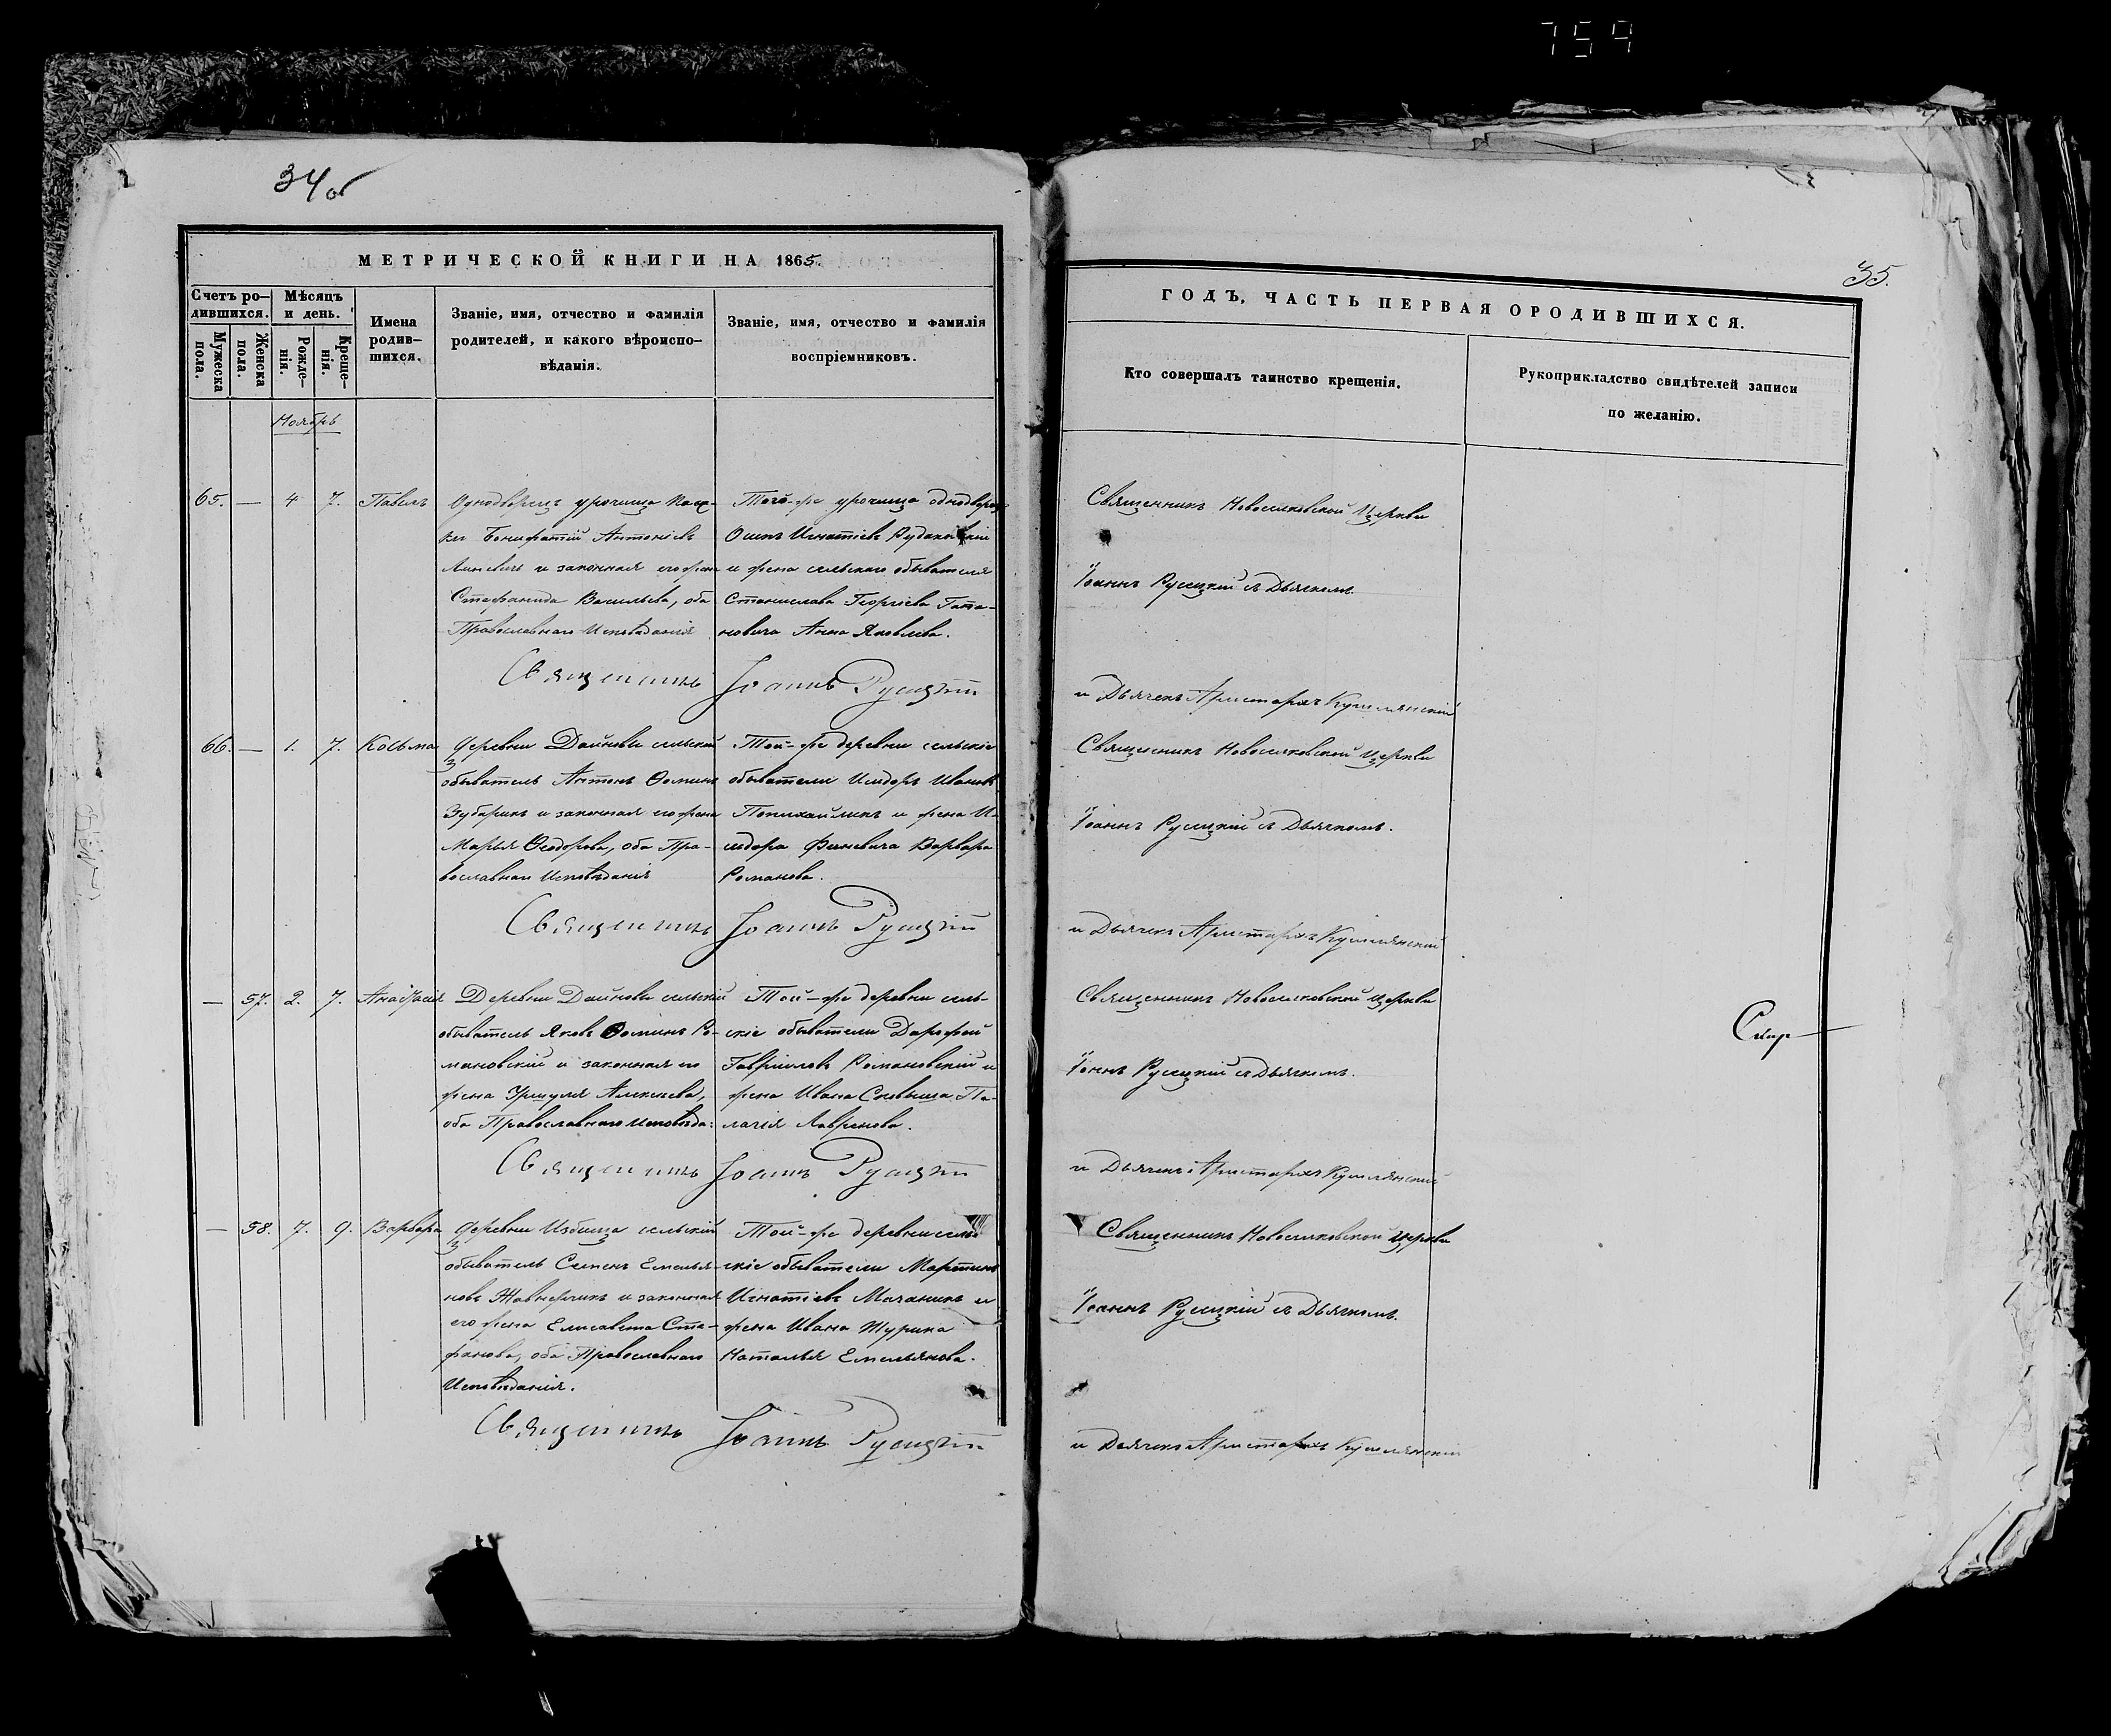 759
34 об
МЕТРИЧЕСКОЙ КНИГИ НА 1865.
Счетъ ро-
дившихся.
Мѣсяцъ
и день.
Мужеска
пола.
Женска
пола.
Рожде-
нія.
Креще-
нія.
Имена
родив-
шихся.
Званіе, имя, отчество и фамилія
родителей, и какого вѣроиспо-
вѣданія.
Званіе, имя, отчество и фамилія
воспріемниковъ.
Ноябрь
65. — 4 7. Павелъ
Однодворецъ урочища
Бонифатій Антоніевъ
и законная его жена
Стефанида Васильева, оба
Православнаго Исповѣданія
Того-же урочища однодворецъ
Осипъ Игнатіевъ
и жена сельскаго обывателя
Станислава Георгіева Гата-
новича Анна Яковлева.
Священникъ Іоаннъ Русецкій
66. — 1. 7. Косьма
Деревни Дайновы сельскій
обыватель Антонъ Ѳоминъ
Зубарикъ и законная его жена
Марья Ѳеодорова, оба Пра-
вославнаго Исповѣданія
Той-же деревни сельскіе
обыватели Исидоръ Ивановъ
и жена И-
сидора Варвара
Романова.
Священникъ Іоаннъ Русецкій
— 57. 2. 7. Анастасія
Деревни Дайновы сельскій
обыватель Яковъ Ѳоминъ Ро-
мановскій и законная его
жена Уршуля Алексѣева,
оба Православнаго Исповѣда:
Той-же деревни сель-
скіе обыватели Дорофей
Гавріиловъ Романовскій и
жена Ивана Па-
лагія Лавренова.
Священникъ Іоаннъ Русецкій
— 58. 7. 9. Варвара
Деревни Избища сельскій
обыватель Семенъ Емелья-
новъ Жавнерчикъ и законная
его жена Елисавета Сте-
фанова, оба Православнаго
Исповѣданія.
Той-же деревни сель-
скіе обыватели Мартинъ
Игнатіевъ Мачаникъ и
жена Ивана Журика
Наталья Емельянова.
Священникъ Іоаннъ Русецкій
35.
ГОДЪ, ЧАСТЬ ПЕРВАЯ ОРОДИВШИХСЯ.
Кто совершалъ таинство крещенія.
Рукоприкладство свидѣтелей записи
по желанію.
Священникъ Новоселковской Церкви
Іоаннъ Русецкій съ Дьячкомъ
и Дьячекъ Аристархъ
Священникъ Новоселковской Церкви
Іоаннъ Русецкій съ Дьячкомъ.
и Дьячекъ Аристархъ
Священникъ Новоселковской Церкви
Іоннъ Русецкій съ Дьячкомъ.
и Дьячекъ Аристархъ
Священникъ Новоселковской Церкви
Іоаннъ Русецкій съ Дьячкомъ.
и Дьячекъ Аристархъ